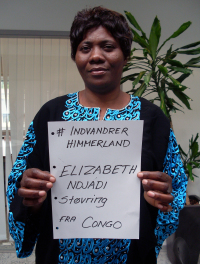 # INDVANDRER
HIMMERLAND
• ELIZABETH
NDJADI
• Støvring
FRA CONGO